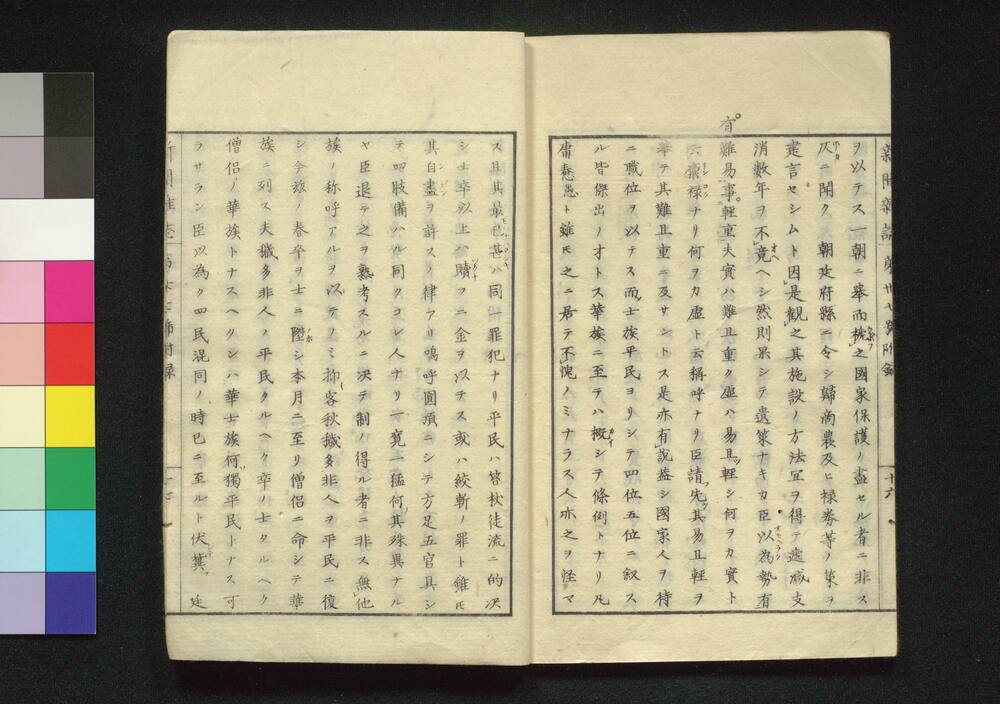 新聞雑誌 第卅七號附録 十六
ヲ以テス一朝ニ擧而委之國家保護ノ盡セル者ニ非ス
仄ニ聞ク朝廷府縣ニ令シ歸商農及ヒ禄券等ノ策ヲ
建言セシムト因是観之其施設ノ方法冝ヲ得テ逓減支
消数年ヲ不竟ヘシ然則果シテ遺策ナキカ臣以為勢有
難易事有輕重夫實ハ難且重ク虚ハ易且輕シ何ヲカ實ト
禄ナリ何ヲカ虚ト云称呼ナリ臣請先其易且輕ヲ
擧テ其難且重ニ及サントス是亦有説蓋シ國家人ヲ待
ニ職位ヲ以テス而士族平民ヨリシテ四位五位ニ叙ス
ル皆傑出ノ才トス華族ニ至テハ概シテ條例トナリ凡
庸愚ト雖モ之ニ居テ不愧ノミナラス人亦之ヲ怪マ
ス且其最已甚ハ同一罪犯ナリ平民ハ笞杖徒流ニ的决
シ士卒以上ハ贖フニ金ヲ以テス或ハ絞斬ノ罪ト雖モ
其自盡ヲ許スノ律アリ嗚呼圓頂ニシテ方足五官具シ
テ四肢備ハル同クコレ人ナリ一寛一猛何其殊異ナル
ヤ臣退テ之ヲ熟考スルニ决テ制ノ得ル者ニ非ス無他
族ノ称呼アルヲ以テノミ抑客秋穢多非人ヲ平民ニ復
シ今茲ノ春卒ヲ士ニ陞シ本月ニ至リ僧侶ニ命シテ華
族ニ列ス夫穢多非人ノ平民タルヘク卒ノ士タルヘク
僧侶ノ華族トナスヘクンハ華士族何獨平民トナス可
ラサラン臣以為ク四民混同ノ時已ニ至ルト伏冀廷